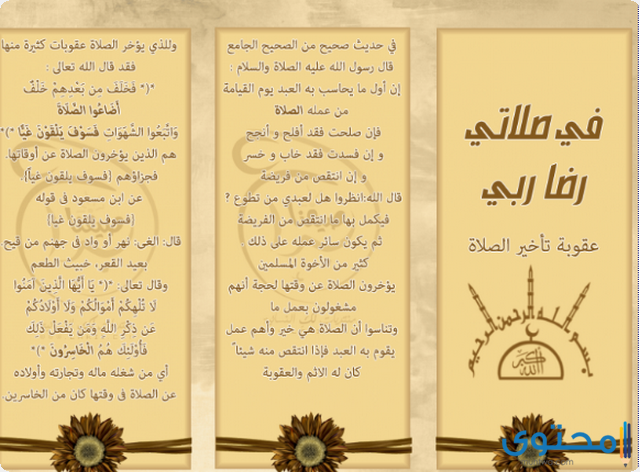 في صلاتي
رضا ربي
عقوبة تأخير الصلاة
بسم الله الرحمن الرحيم
الله اكبر
في حديث صحيح من الصحيح الجامع
قال رسول الله عليه الصلاة والسلام :
إن أول ما يحاسب به العبد يوم القيامة
من عمله الصلاة
فإن صلحت فقد أفلح و أنجح
و إن فسدت فقد خاب و خسر
و إن انتقص من فريضة
قال الله:انظروا هل لعبدي من تطوع ?
فيكمل بها ما انتقص من الفريضة
ثم يكون سائر عمله على ذلك .
كثير من الأخوة المسلمين
يؤخرون الصلاة عن وقتها لحجة أنهم
مشغولون بعمل ما
وتناسوا أن الصلاة هي خير وأهم عمل
يقوم به العبد فإذا انتقص منه شيئاً
كان له الاثم والعقوبة
وللذي يؤخر الصلاة عقوبات كثيرة منها
فقد قال الله تعالى :
"(" فَخَلَفَ مِن بَعْدِهِمْ خَلْفٌ
أَضَاعُوا الصَّلَاةَ
وَاتَّبَعُوا الشَّهَوَاتِ فَسَوْفَ يَلْقَوْنَ غَيًّا ")"
هم الذين يؤخرون الصلاة عن أوقاتها.
فجزاؤهم {فسوف يلقون غياً}.
عن ابن مسعود في قوله
{فسوف يلقون غيا}
قال: الغي: نهر أو واد في جهنم من قيح
بعيد القعر، خبيث الطعم
وقال تعالى: "(" يَا أَيُّهَا الَّذِينَ آمَنُوا
لَا تُلْهِكُمْ أَمْوَالُكُمْ وَلَا أَوْلَادُكُمْ
عَن ذِكْرِ اللَّهِ وَمَن يَفْعَلْ ذَلِكَ
فَأُوْلَئِكَ هُمُ الْخَاسِرُونَ ")"
أي من شغله ماله وتجارته وأولاده
عن الصلاة في وقتها كان من الخاسرين.
محتوى